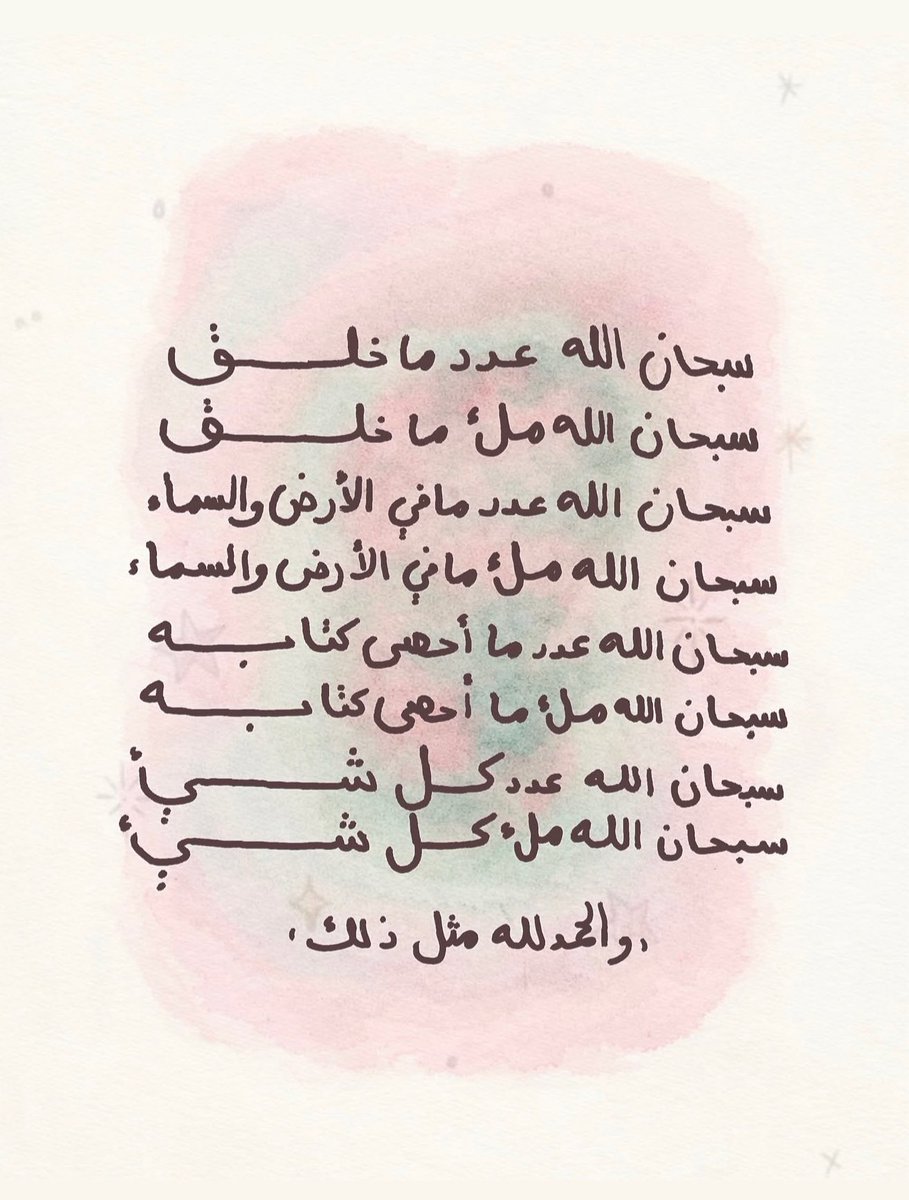 سبحان الله عدد ما خلق
سبحان الله ملئ ما خلق
سبحان الله عدد مافي الأرض والسماء
سبحان الله ملئ مافي الأرض والسماء
سبحان الله عدد ما أحصى كتابه
سبحان الله ملئ ما أحصى كتابه
سبحان الله عدد كل شيأ
سبحان الله ملئ كل شيأ
، والحمدلله مثل ذلك ،